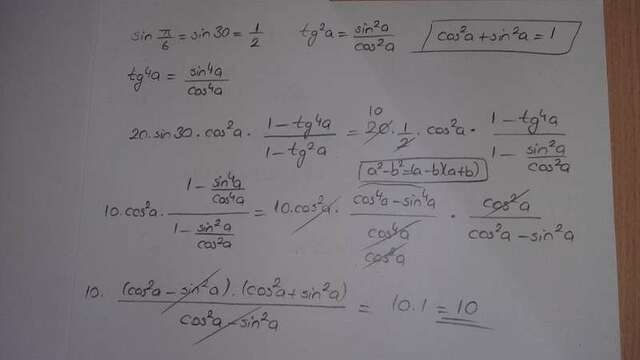 sin π/6 = sin 30 = 1/2   tg²a = sin²a/cos²a   cos²a + sin²a = 1
tg⁴a = sin⁴a/cos⁴a
20 · sin 30 · cos²a · (1 - tg⁴a)/(1 - tg²a) = 20 · 1/2 · cos²a · (1 - tg⁴a)/(1 - sin²a/cos²a)
10
a² - b² = (a - b)(a + b)
10 · cos²a · (1 - sin⁴a/cos⁴a)/(1 - sin²a/cos²a) = 10 · cos²a · (cos⁴a - sin⁴a)/cos⁴a · cos²a/(cos²a - sin²a)
cos²a
10 · (cos²a - sin²a) · (cos²a + sin²a)/(cos²a - sin²a) = 10 · 1 = 10